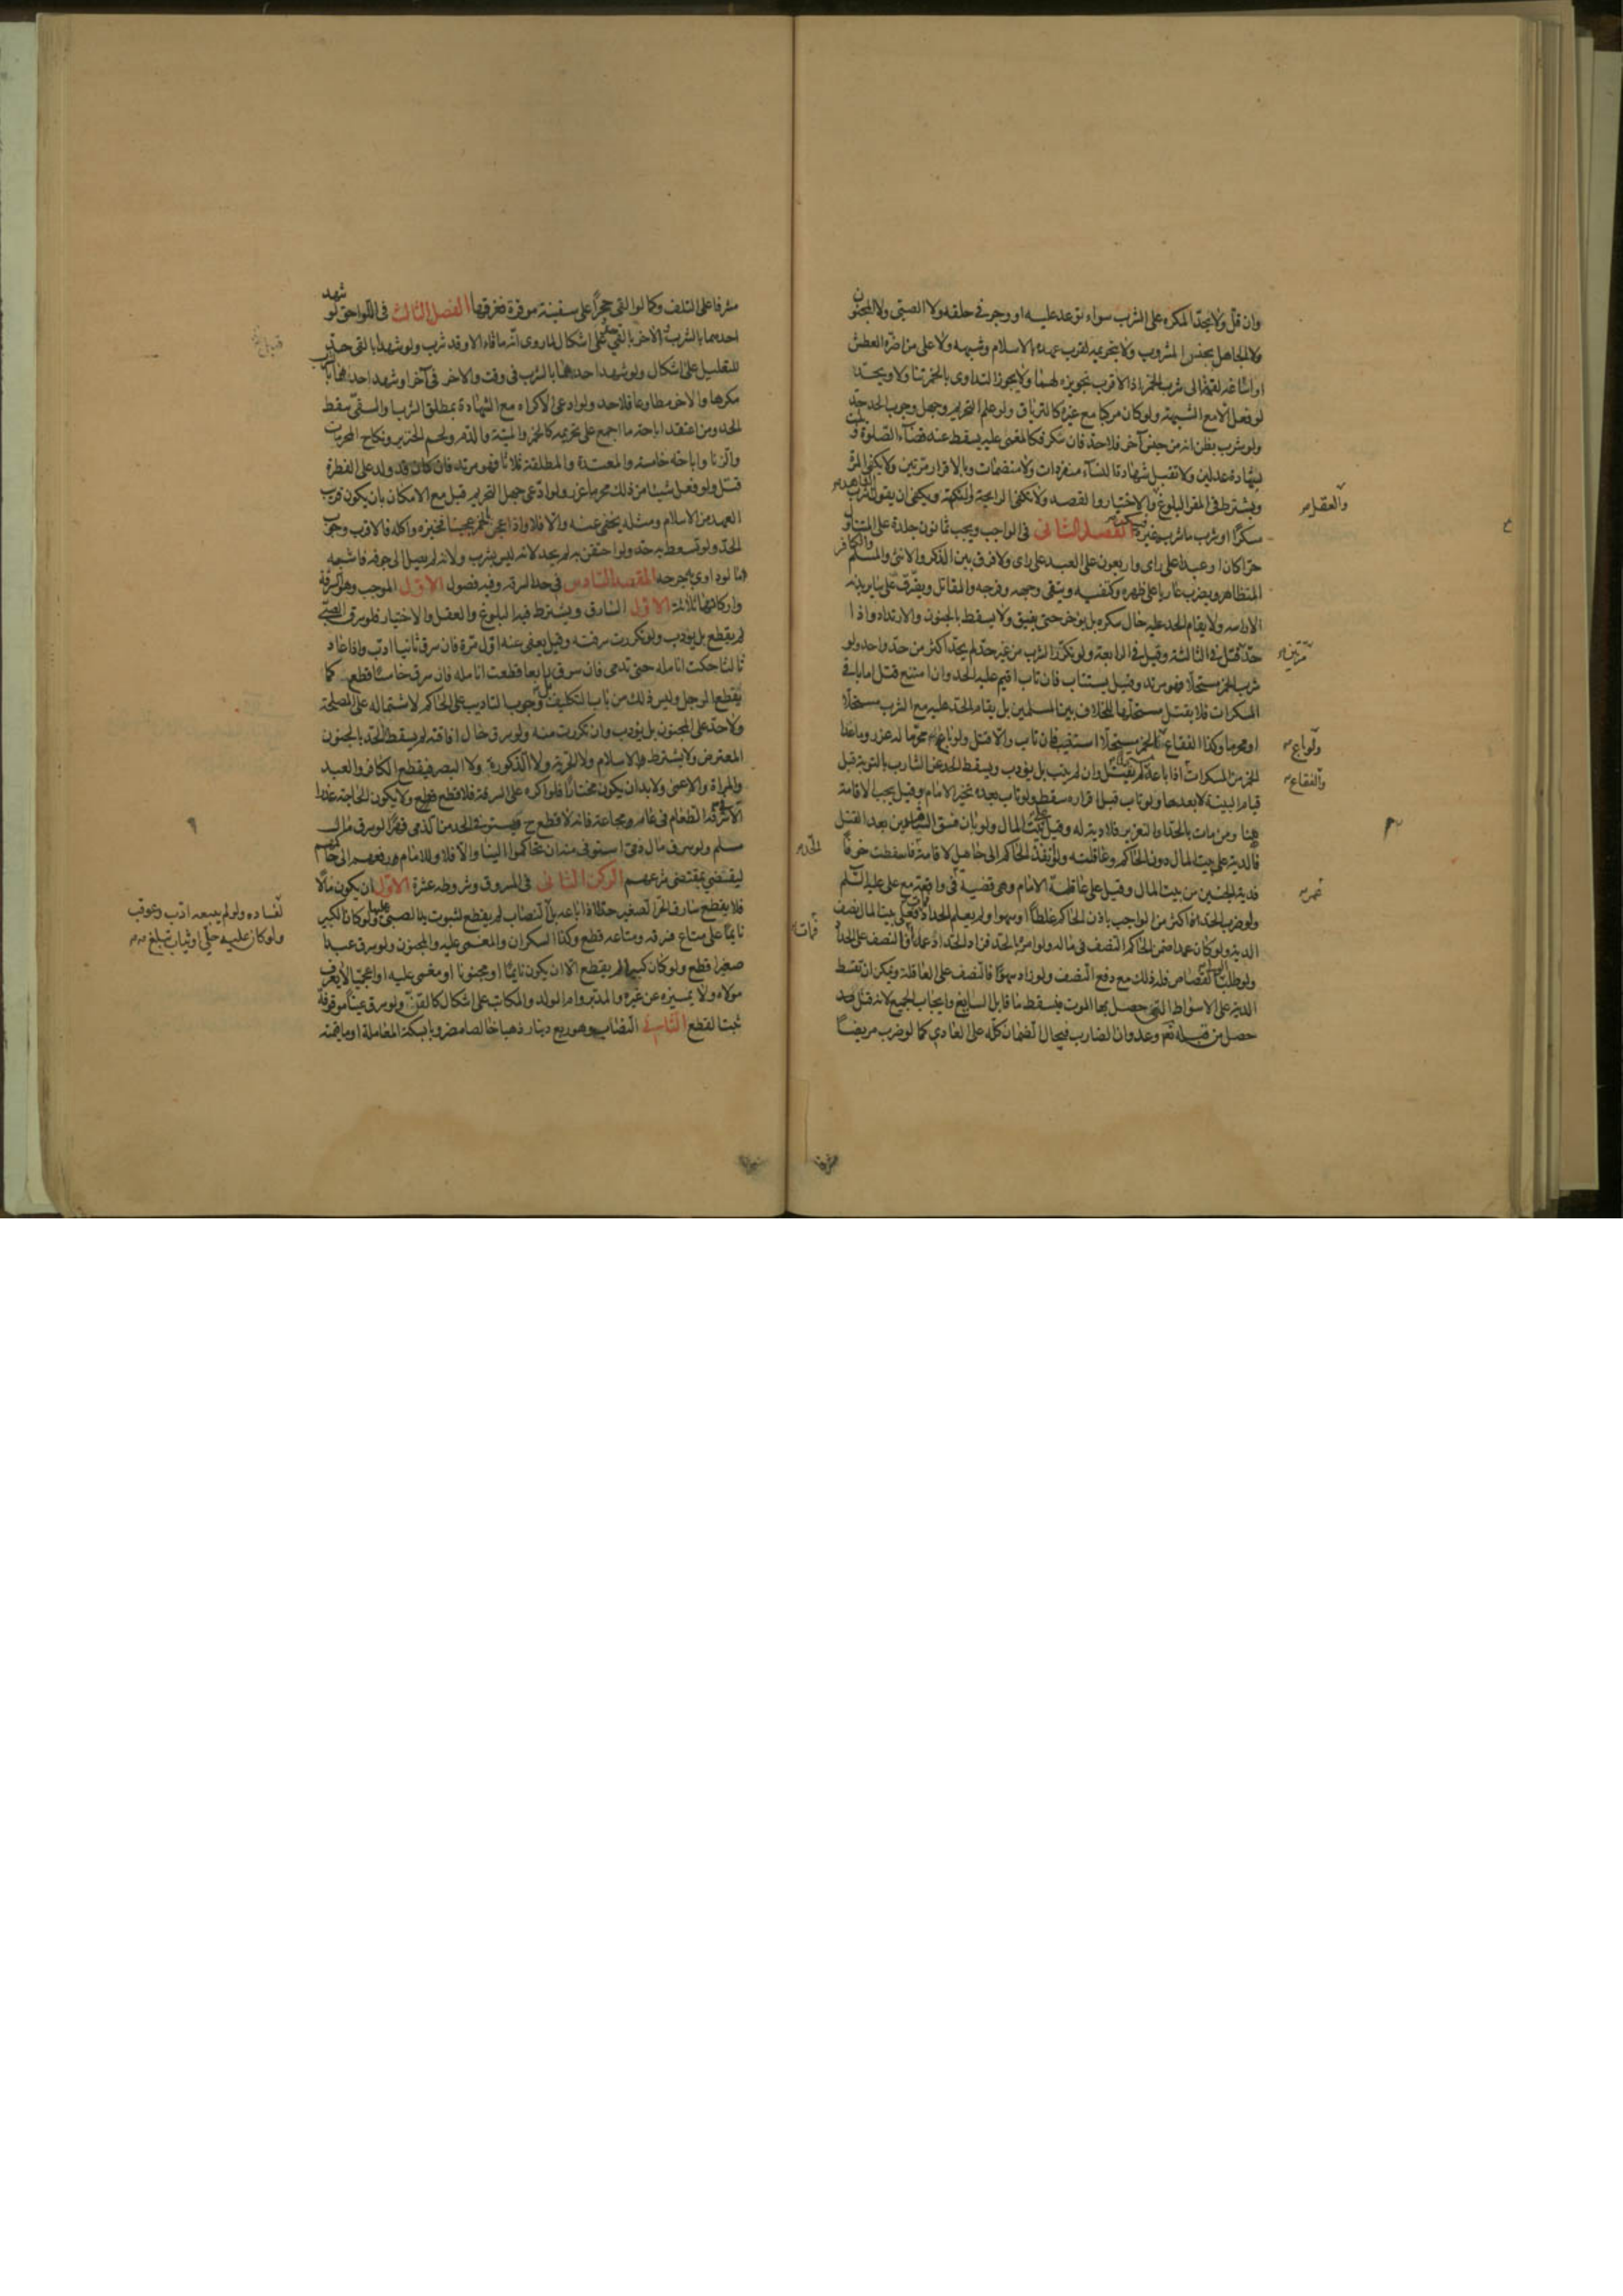 وان قل ولا يحد المكره على الشرب سواء توعد عليه او وجر في حلقه ولا الصبي ولا المجنون
ولا الجاهل بجنس المشروب ولا بتحريمه لقرب عهده بالاسلام وشبهه ولا على من اضره العطش
او اساغة لقمة الى شرب الخمر اذ الاقرب تجويزه لهما ولا يجوز التداوى بالخمر تناولا ويحد
لو فعل الا مع الشبهة ولو كان مركبا مع غيره كالترياق ولو علم التحريم وجهل وجوب الحد حد
ولو شرب بظن انه من جنس آخر فلا حد فان سكر فكالمغمى عليه يسقط عنه قضاء الصلوة
بشهادة عدلين ولا تقبل شهادة النساء منفردات ولا منضمات وبالاقرار مرتين ولا يكفى المرة
ويشترط في المقر البلوغ والاختيار والقصد ولا تكفى الرايحة والنكهة ويكفى ان يقول الشاهد شرب
والعقل
مسكرا او شرب ما شرب غيره فسكر الفصل الثانى في الواجب ويجب ثمانون جلدة على المتناول
حرا كان او عبدا على راى واربعون على العبد على راى ولا فرق بين الذكر والانثى والمسلم والكافر
المتظاهر ويضرب عاريا على ظهره وكتفيه ويتقى وجهه وفرجه والمقاتل ويفرق على سائر بدنه
ولا يقام الحد عليه حال سكره بل يؤخر حتى يفيق ولا يسقط بالجنون والارتداد واذا
حد قتل في الثالثة وقيل في الرابعة ولو تكرر الشرب من غير حد لم يحد اكثر من حد واحد ولو
مرتين
شرب الخمر مستحلا فهو مرتد وقيل يستتاب فان تاب اقيم عليه الحد وان امتنع قتل اما باقي
المسكرات فلا يقتل مستحلها للخلاف بين المسلمين بل يقام الحد عليه مع الشرب مستحلا
او محرما وكذا الفقاع الخمر مستحلا استتيب فان تاب والا قتل ولو باع محرما له عزر وما عدا
ولو باع
الخمر من المسكرات اذا باعه لم يقتل وان لم يتب بل يؤدب ويسقط الحد عن الشارب بالتوبة قبل
والفقاع
قيام البينة لا بعدها ولو تاب قبل اقراره سقط ولو تاب بعده تخير الامام وقيل يجب الاقامة
هنا ومن مات بالحد او التعزير فلا دية له وقيل على بيت المال ولو بان فسق الشاهدين بعد القتل
فالدية على بيت المال دون الحاكم وعاقلته ولو انفذ الحاكم الى حامل لاقامة فاسقطت خوفا
الحد
فدية الجنين من بيت المال وقيل على عاقلة الامام وهى قضية في واقعة مع على عليه السلم
عمر
ولو ضرب الحداد اكثر من الواجب باذن الحاكم غلطا او سهوا ولم يعلم الحداد فعلى بيت المال نصف
فمات
الدية ولو كان عمدا ضمن الحاكم النصف في ماله ولو امره بالحد فزاد الحداد عمدا فالنصف على الحداد
ولو طلب الولى القصاص فله ذلك مع دفع النصف ولو زاد سهوا فالنصف على العاقلة ويمكن ان تقسط
الدية على الاسواط التى حصل بها الموت فيسقط ما قابل السايغ وايجاب الجميع لانه قتل
حصل من فعله تعالى وعدوان الضارب فيحال الضمان كله على العادى كما لو ضرب مريضا
مشرفا على التلف وكما لو القى حجرا على سفينة موقرة فغرقها الفصل الثالث في اللواحق لو شهد
احدهما بالشرب والآخر بالقى حد على اشكال لما روى انه ما قاء الا وقد شرب ولو شهدا بالقى حد
للتعليل على اشكال ولو شهد احدهما بالشرب في وقت والاخر في آخر او شهد احدهما بالشرب
مكرها والاخر مطاوعا فلا حد ولو ادعى الاكراه مع الشهادة بمطلق الشرب او القى سقط
الحد ومن اعتقد اباحة ما اجمع على تحريمه كالخمر والميتة والدم ولحم الخنزير ونكاح المحرمات
والزنا واباحة خامسة والمعتدة والمطلقة ثلاثا فهو مرتد فان كان قد ولد على الفطرة
قتل ولو فعل شيئا من ذلك محرما عزر ولو ادعى جهل التحريم قبل مع الامكان بان يكون قريب
العهد من الاسلام ومثله يخفى عنه والا فلا واذا عجن بالخمر عجينا فخبزه واكله فالاقرب وجوب
الحد ولو تسعط به حد ولو احتقن به لم يحد لانه ليس بشرب ولانه لم يصل الى جوفه فاشبه
ما لو داوى به جرحه المقصد السادس في حد السرقة وفيه فصول الاول الموجب وهو السرقة
واركانها ثلاثة الاول السارق ويشترط فيه البلوغ والعقل والاختيار فلو سرق الصبى
لم يقطع بل يؤدب ولو تكررت سرقته وقيل يعفى عنه اول مرة فان سرق ثانيا ادب فان عاد
ثالثا حكت انامله حتى تدمى فان سرق رابعا قطعت انامله فان سرق خامسا قطع كما
يقطع الرجل وليس ذلك من باب التكليف بل وجوب التاديب على الحاكم لاشتماله على المصلحة
ولا حد على المجنون بل يؤدب وان تكررت منه ولو سرق حال افاقته لم يسقط الحد بالجنون
المعترض ولا يشترط الاسلام ولا الحرية ولا الذكورة ولا البصر فيقطع الكافر والعبد
والمراة والاعمى ولا بد ان يكون مختارا فلو اكره على السرقة فلا قطع ولا يكون الحاجة عذرا
الا في سرقة الطعام في عام مجاعة فانه لا قطع ح ويستوفى الحد من الذمى قهرا لو سرق مال
مسلم ولو سرق مال ذمى استوفى منه ان تحاكموا الينا والا فلا وللامام رفعهم الى حاكمهم
ليقضى بمقتضى شرعهم الركن الثانى في المسروق وشروطه عشرة الاول ان يكون مالا
فلا يقطع سارق الحر الصغير حدا اذا باعه بل لفساده ولو لم يبعه ادب وعوقب
ولو كان عليه حلى او ثياب تبلغ النصاب لم يقطع لثبوت يد الصبى عليها ولو كان الكبير
نايما على متاع فسرقه ومتاعه قطع وكذا السكران والمغمى عليه والمجنون ولو سرق عبدا
صغيرا قطع ولو كان كبيرا لم يقطع الا ان يكون نايما او مجنونا او مغمى عليه او اعجميا لا يعرف
مولاه ولا يميزه عن غيره والمدبر وام الولد والمكاتب على اشكال كالقن ولو سرق عينا موقوفة
ثبت القطع الثانى النصاب وهو ربع دينار ذهبا خالصا مضروبا بسكة المعاملة او ما قيمته